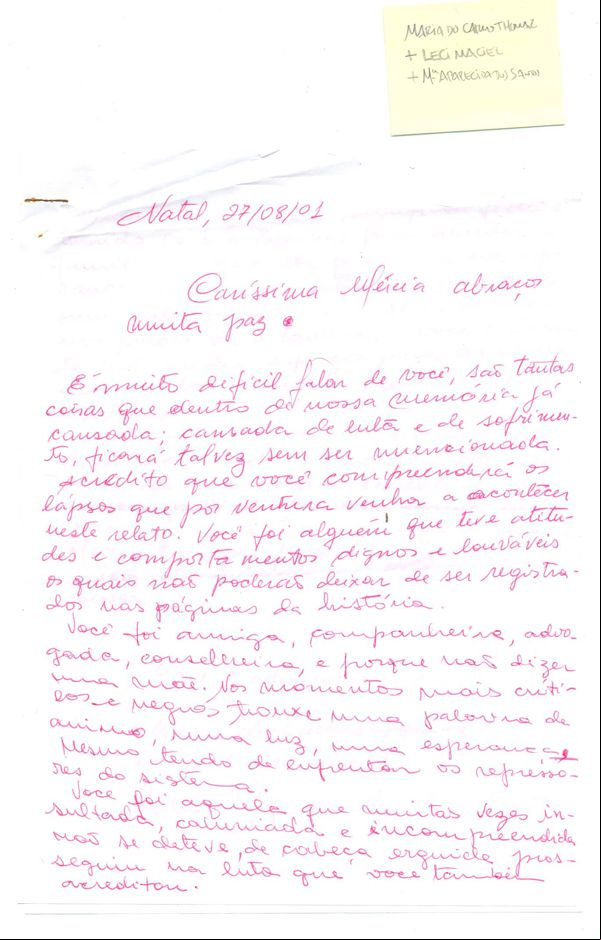 MARIA DO CARMO THOMAZ
+ LECI MACIEL
+ Mª APARECIDA DOS SANTOS
Natal, 27/08/01
Caríssima Mércia abraços
muita paz.
É muito difícil falar de você, são tantas
coisas que dentro da nossa memória já
cansada; cansada de luta e de sofrimen-
to, ficará talvez sem ser mencionada.
Acredito que você compreenderá os
lápsos que por ventura venha a acontecer
neste relato. Você foi alguém que teve atitu-
des e comportamentos dignos e louváveis
os quais não poderão deixar de ser registra-
dos nas páginas da história.
Você foi amiga, companheira, advo-
gada, conselheira, e porque não dizer
uma mãe. Nos momentos mais críti-
cos e negros trouxe uma palavra de
animo, uma luz, uma esperança,
Mesmo tendo de enfrentar os represso-
res do sistema.
Você foi aquela que muitas vezes in-
sultada, caluniada e incompreendida
não se deteve, de cabeça erguida pros-
seguiu na luta que você também
acreditou.